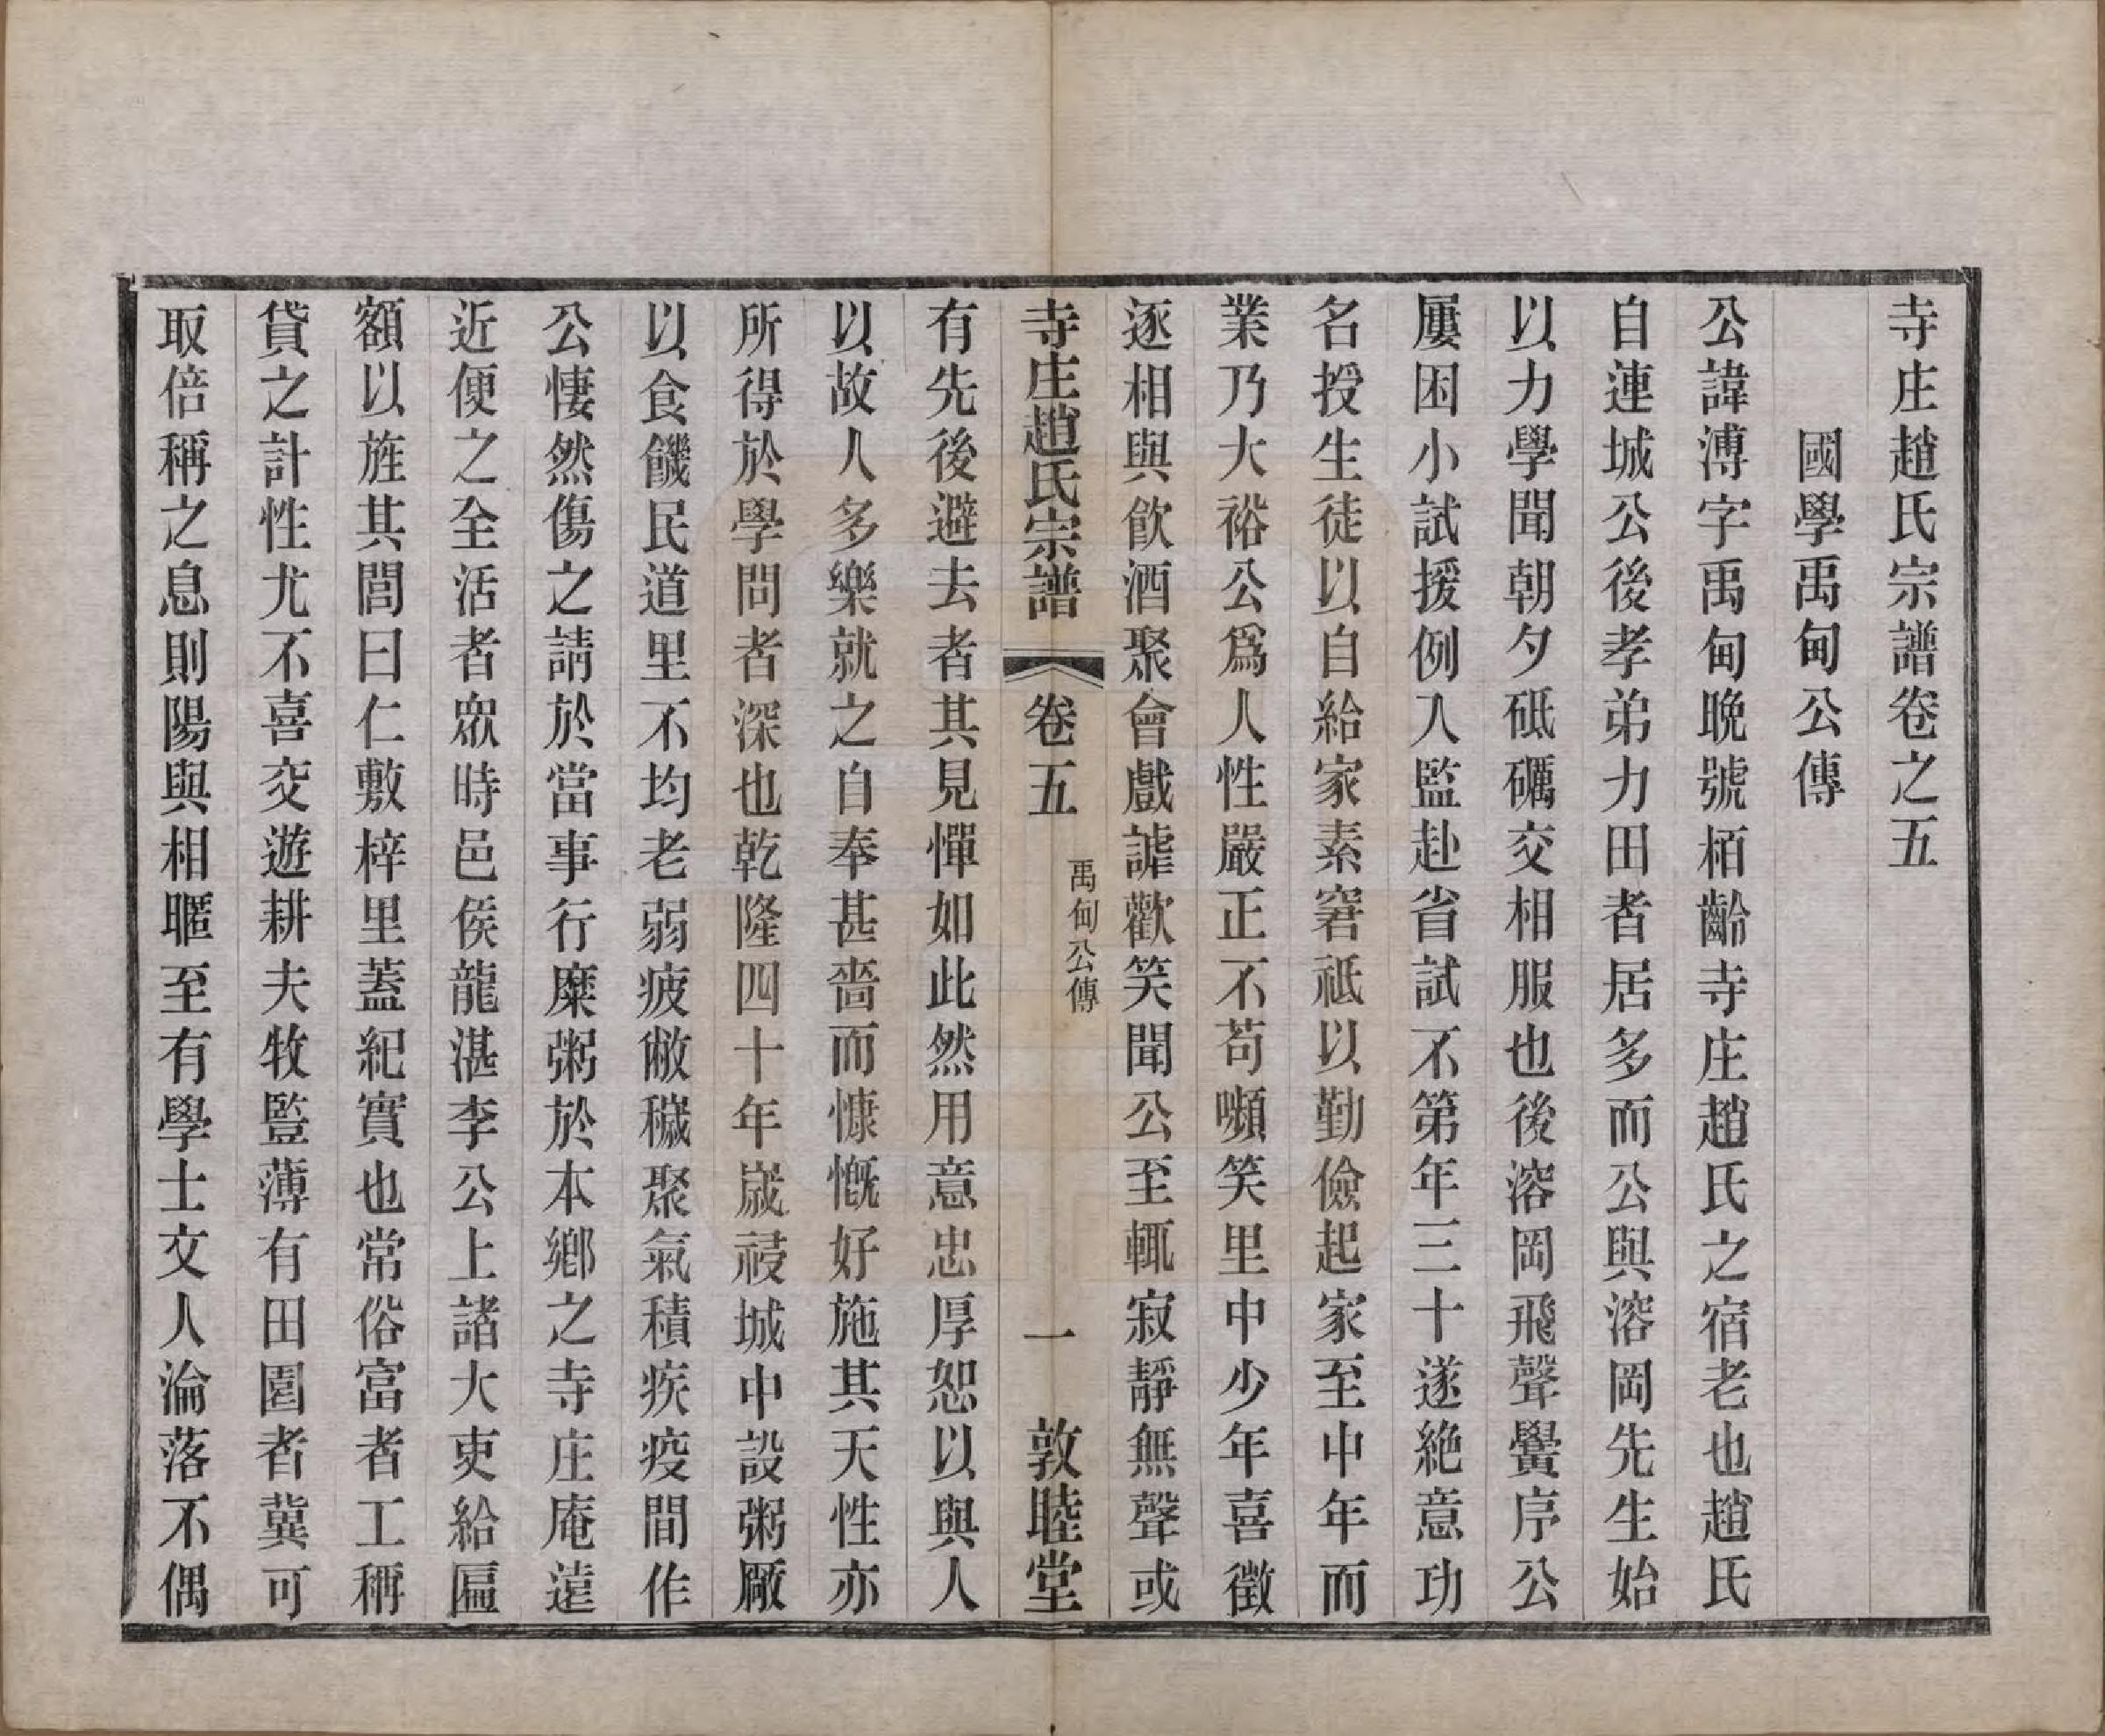 寺庄趙氏宗譜卷之五
國學禹甸公傳
公諱溥字禹甸晚號栢齡寺庄趙氏之宿老也趙氏
自連城公後孝弟力田者居多而公與溶岡先生始
以力學聞朝夕砥礪交相服也後溶岡飛聲黌序公
屢困小試援例入監赴省試不第年三十遂絶意功
名授生徒以自給家素窘祗以勤儉起家至中年而
業乃大裕公爲人性嚴正不苟嚬笑里中少年喜徵
逐相與飲酒聚會戲謔歡笑聞公至輒寂靜無聲或
寺庄趙氏宗譜 卷五 禹甸公傳 一 敦睦堂
有先後避去者其見憚如此然用意忠厚恕以與人
以故人多樂就之自奉甚嗇而慷慨好施其天性亦
所得於學問者深也乾隆四十年歲祲城中設粥厰
以食饑民道里不均老弱疲敝穢聚氣積疾疫間作
公悽然傷之請於當事行糜粥於本鄉之寺庄庵遠
近便之全活者眾時邑侯龍湛李公上諸大吏給匾
額以旌其閭曰仁敷梓里蓋紀實也常俗富者工稱
貸之計性尤不喜交遊耕夫牧豎薄有田園者冀可
取倍稱之息則陽與相暱至有學士文人淪落不偶